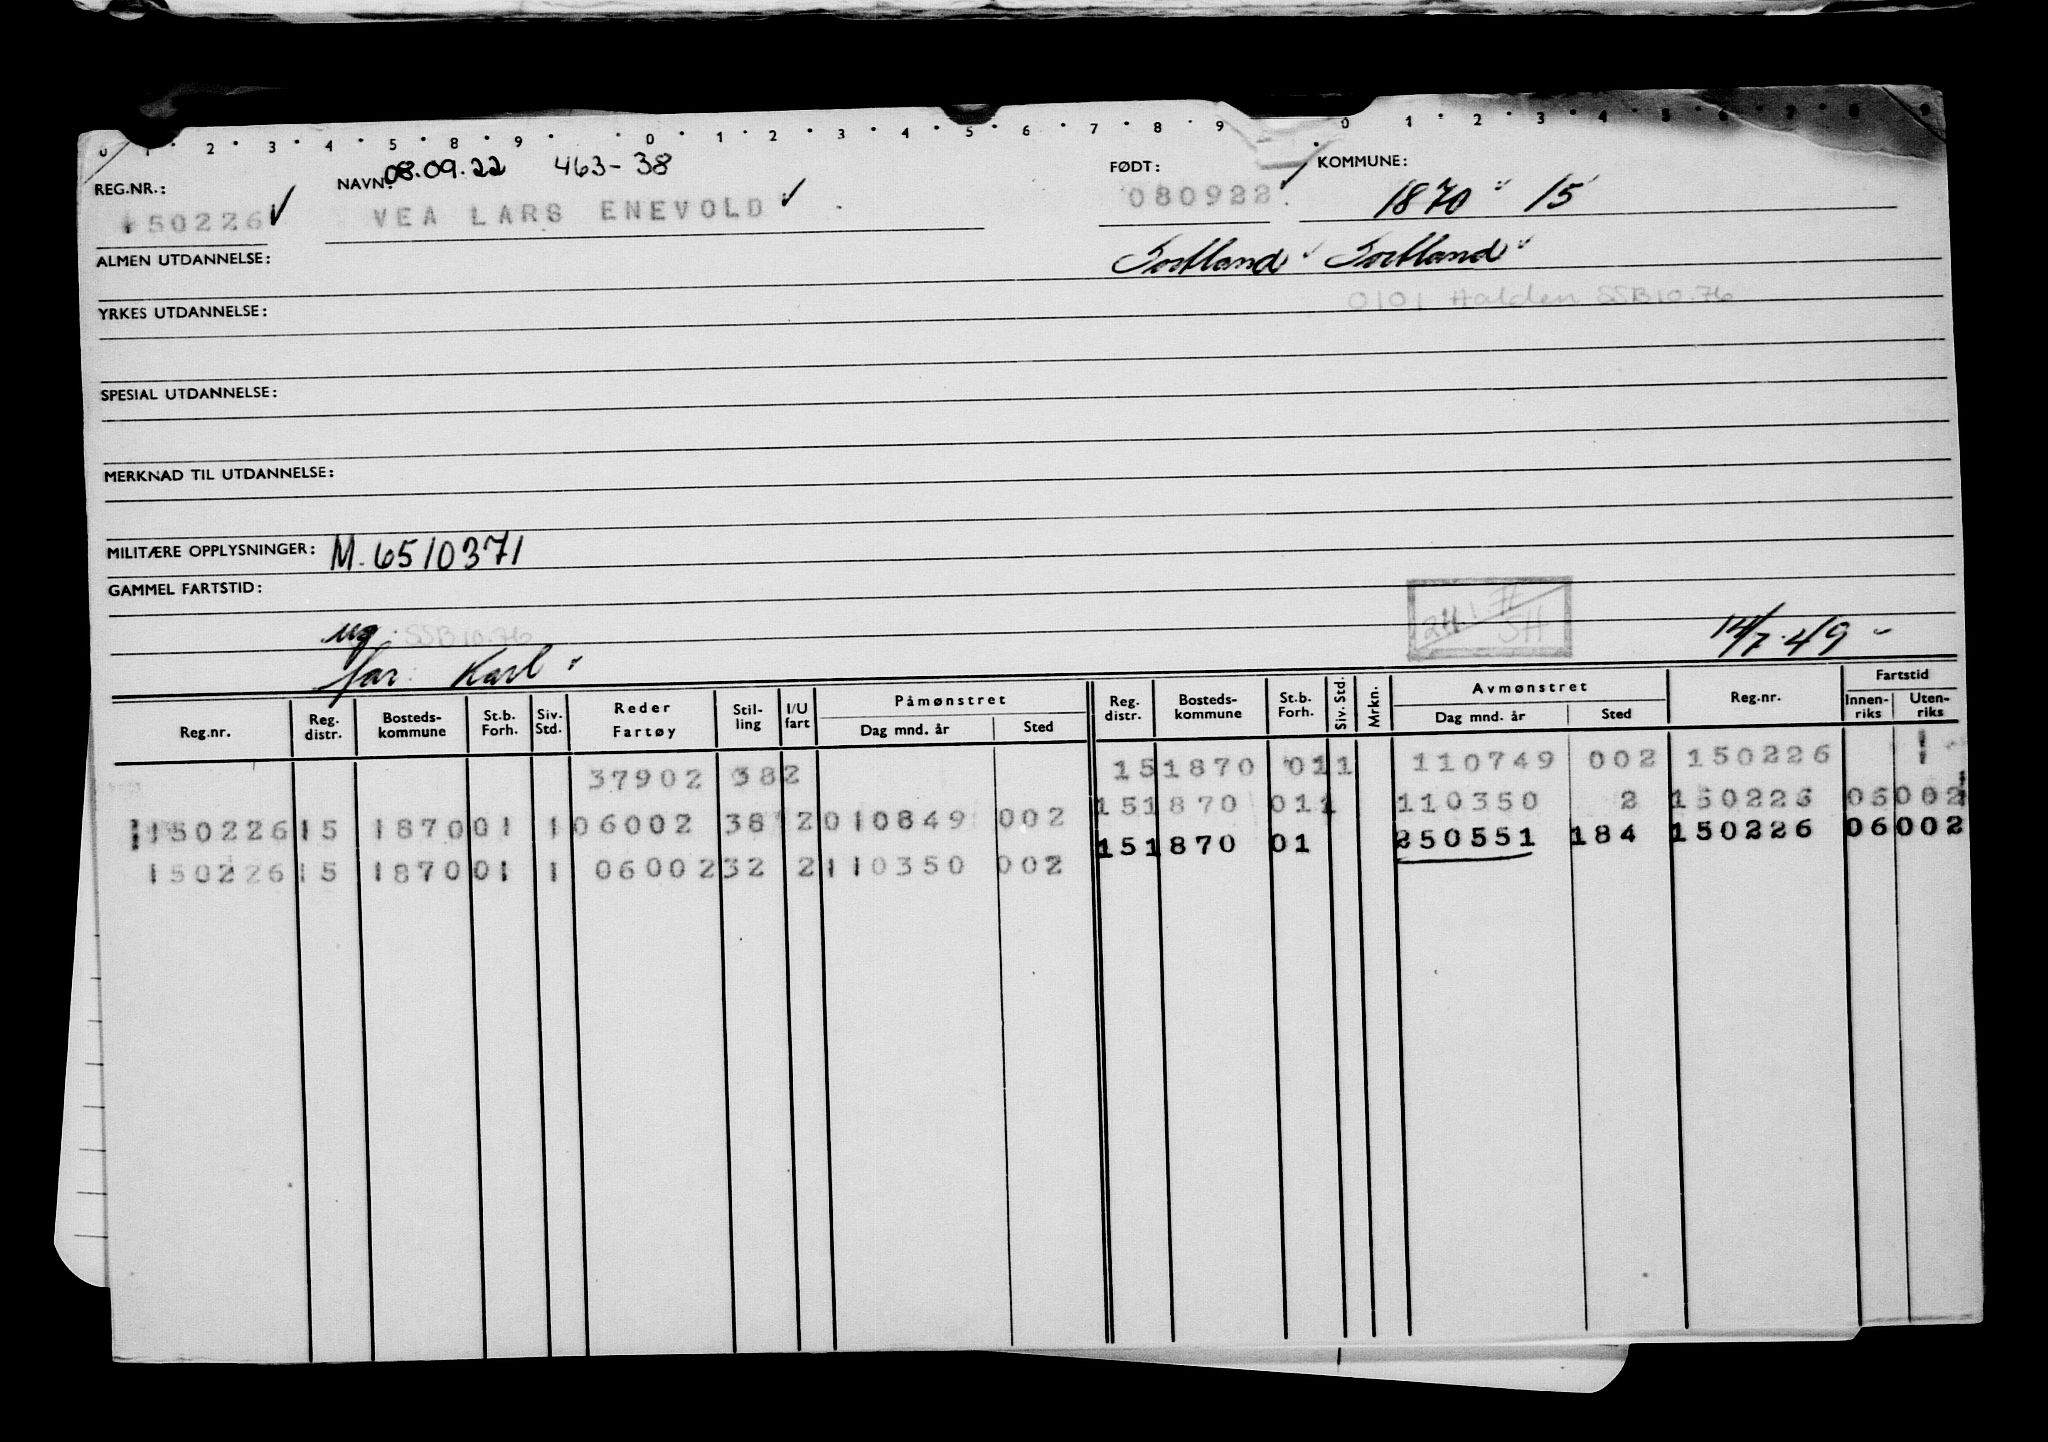 0 1 2 3 4 5 8 9 0 1 2 3 4 5 6 7 8 9 0 1 2 3 4 5 6 7 8 9
REG.NR.: NAVN: 08.09.22 463-38 FØDT: KOMMUNE:
150226 ✓ VEA LARS ENEVOLD ✓ 080922 ✓ 1870 15
ALMEN UTDANNELSE: Sortland Sortland
0101 Halden SSB 10.76
YRKES UTDANNELSE:
SPESIAL UTDANNELSE:
MERKNAD TIL UTDANNELSE:
MILITÆRE OPPLYSNINGER: M. 6510371
GAMMEL FARTSTID:
ug. SSB 10.76 SH 14/7.49 -
far: Karl
Reg.nr. Reg. distr. Bosteds-kommune St.b. Forh. Siv. Std. Reder Fartøy Stil-ling I/U fart Påmønstret Dag mnd. år Sted Reg. distr. Bosteds-kommune St.b. Forh. Siv. Std. Mrkn. Avmønstret Dag mnd. år Sted Reg.nr. Fartstid Innen-riks Uten-riks
37902 38 2 15 1870 01 1 110749 002 150226 1
150226 15 1870 01 1 06002 38 2 010849 002 15 1870 01 1 110350 2 150226 06002
150226 15 1870 01 1 06002 32 2 110350 002 15 1870 01 250551 184 150226 06002